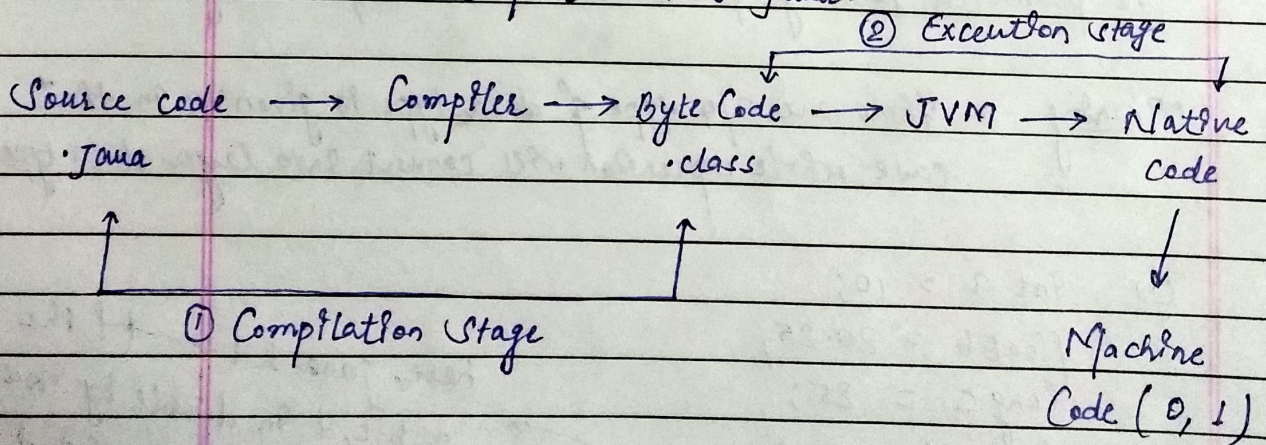 ② Execution stage
Source code → Compiler → Byte Code → JVM → Native
.Java .class code
① Compilation stage
Machine
Code (0, 1)